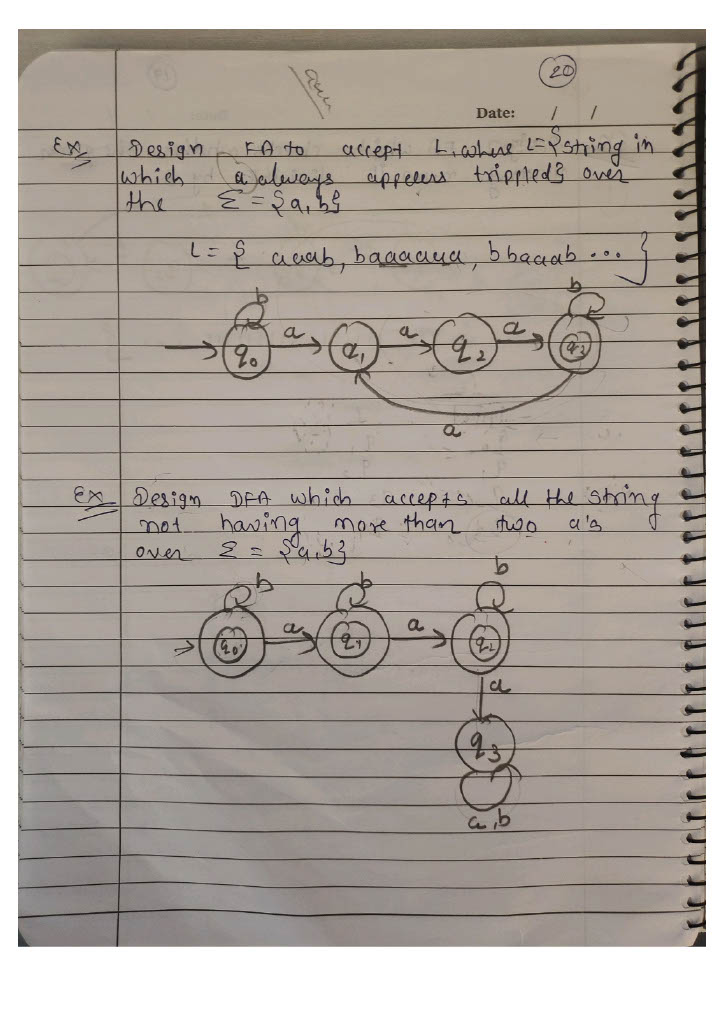 20
Date: / /
Ex Design FA to accept L, where L={string in
which a always appears trippled} over
the Σ = {a, b}
L = { aaab, baaaaaa, bbaaab ... }
b b
a a a
q0 q1 q2 q3
a
Ex Design DFA which accepts all the string
not having more than two a's
over Σ = {a,b}
b b b
a a
q0 q1 q2
a
q3
a,b